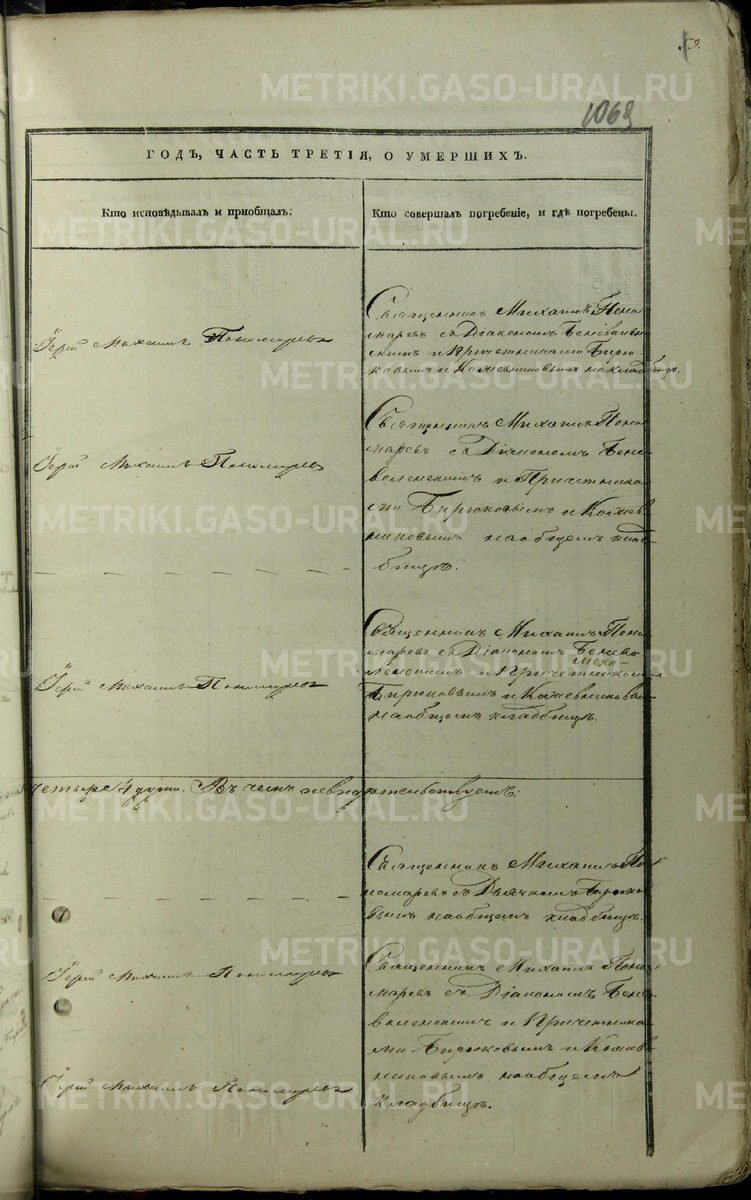 53.
1069
ГОДЪ, ЧАСТЬ ТРЕТІЯ, О УМЕРШИХЪ.
Кто исповѣдывалъ и пріобщалъ:
Кто совершалъ погребеніе, и гдѣ погребены.
Іерей Михаилъ Пономаревъ
Священникъ Михаилъ Поно
маревъ съ Діакономъ Беневолен
скимъ и Причетниками Бирю
ковымъ и Кожевниковымъ на кладбищѣ.
Іерей Михаилъ Пономаревъ
Священникъ Михаилъ Поно
маревъ съ Діакономъ Бене
воленскимъ и Причетника
ми Бирюковымъ и Кожев
никовымъ на общемъ клад
бищѣ.
Іерей Михаилъ Пономаревъ
Священникъ Михаилъ Поно
маревъ съ Діакономъ Бенево
ленскимъ и Причетниками
Бирюковымъ и Кожевниковым
на общемъ кладбищѣ.
четыре 4 души. Въ чемъ и свидѣтельствуемъ:
Священникъ Михаилъ По
номаревъ съ Дьячкомъ Бирюко
вымъ на общемъ кладбищѣ.
Іерей Михаилъ Пономаревъ
Священникъ Михаилъ Поно
маревъ съ Діакономъ Бене
воленскимъ и Причетника
ми Бирюковымъ и Кожев
никовымъ на общемъ
кладбищѣ.
Іерей Михаилъ Пономаревъ
METRIKI.GASO-URAL.RU